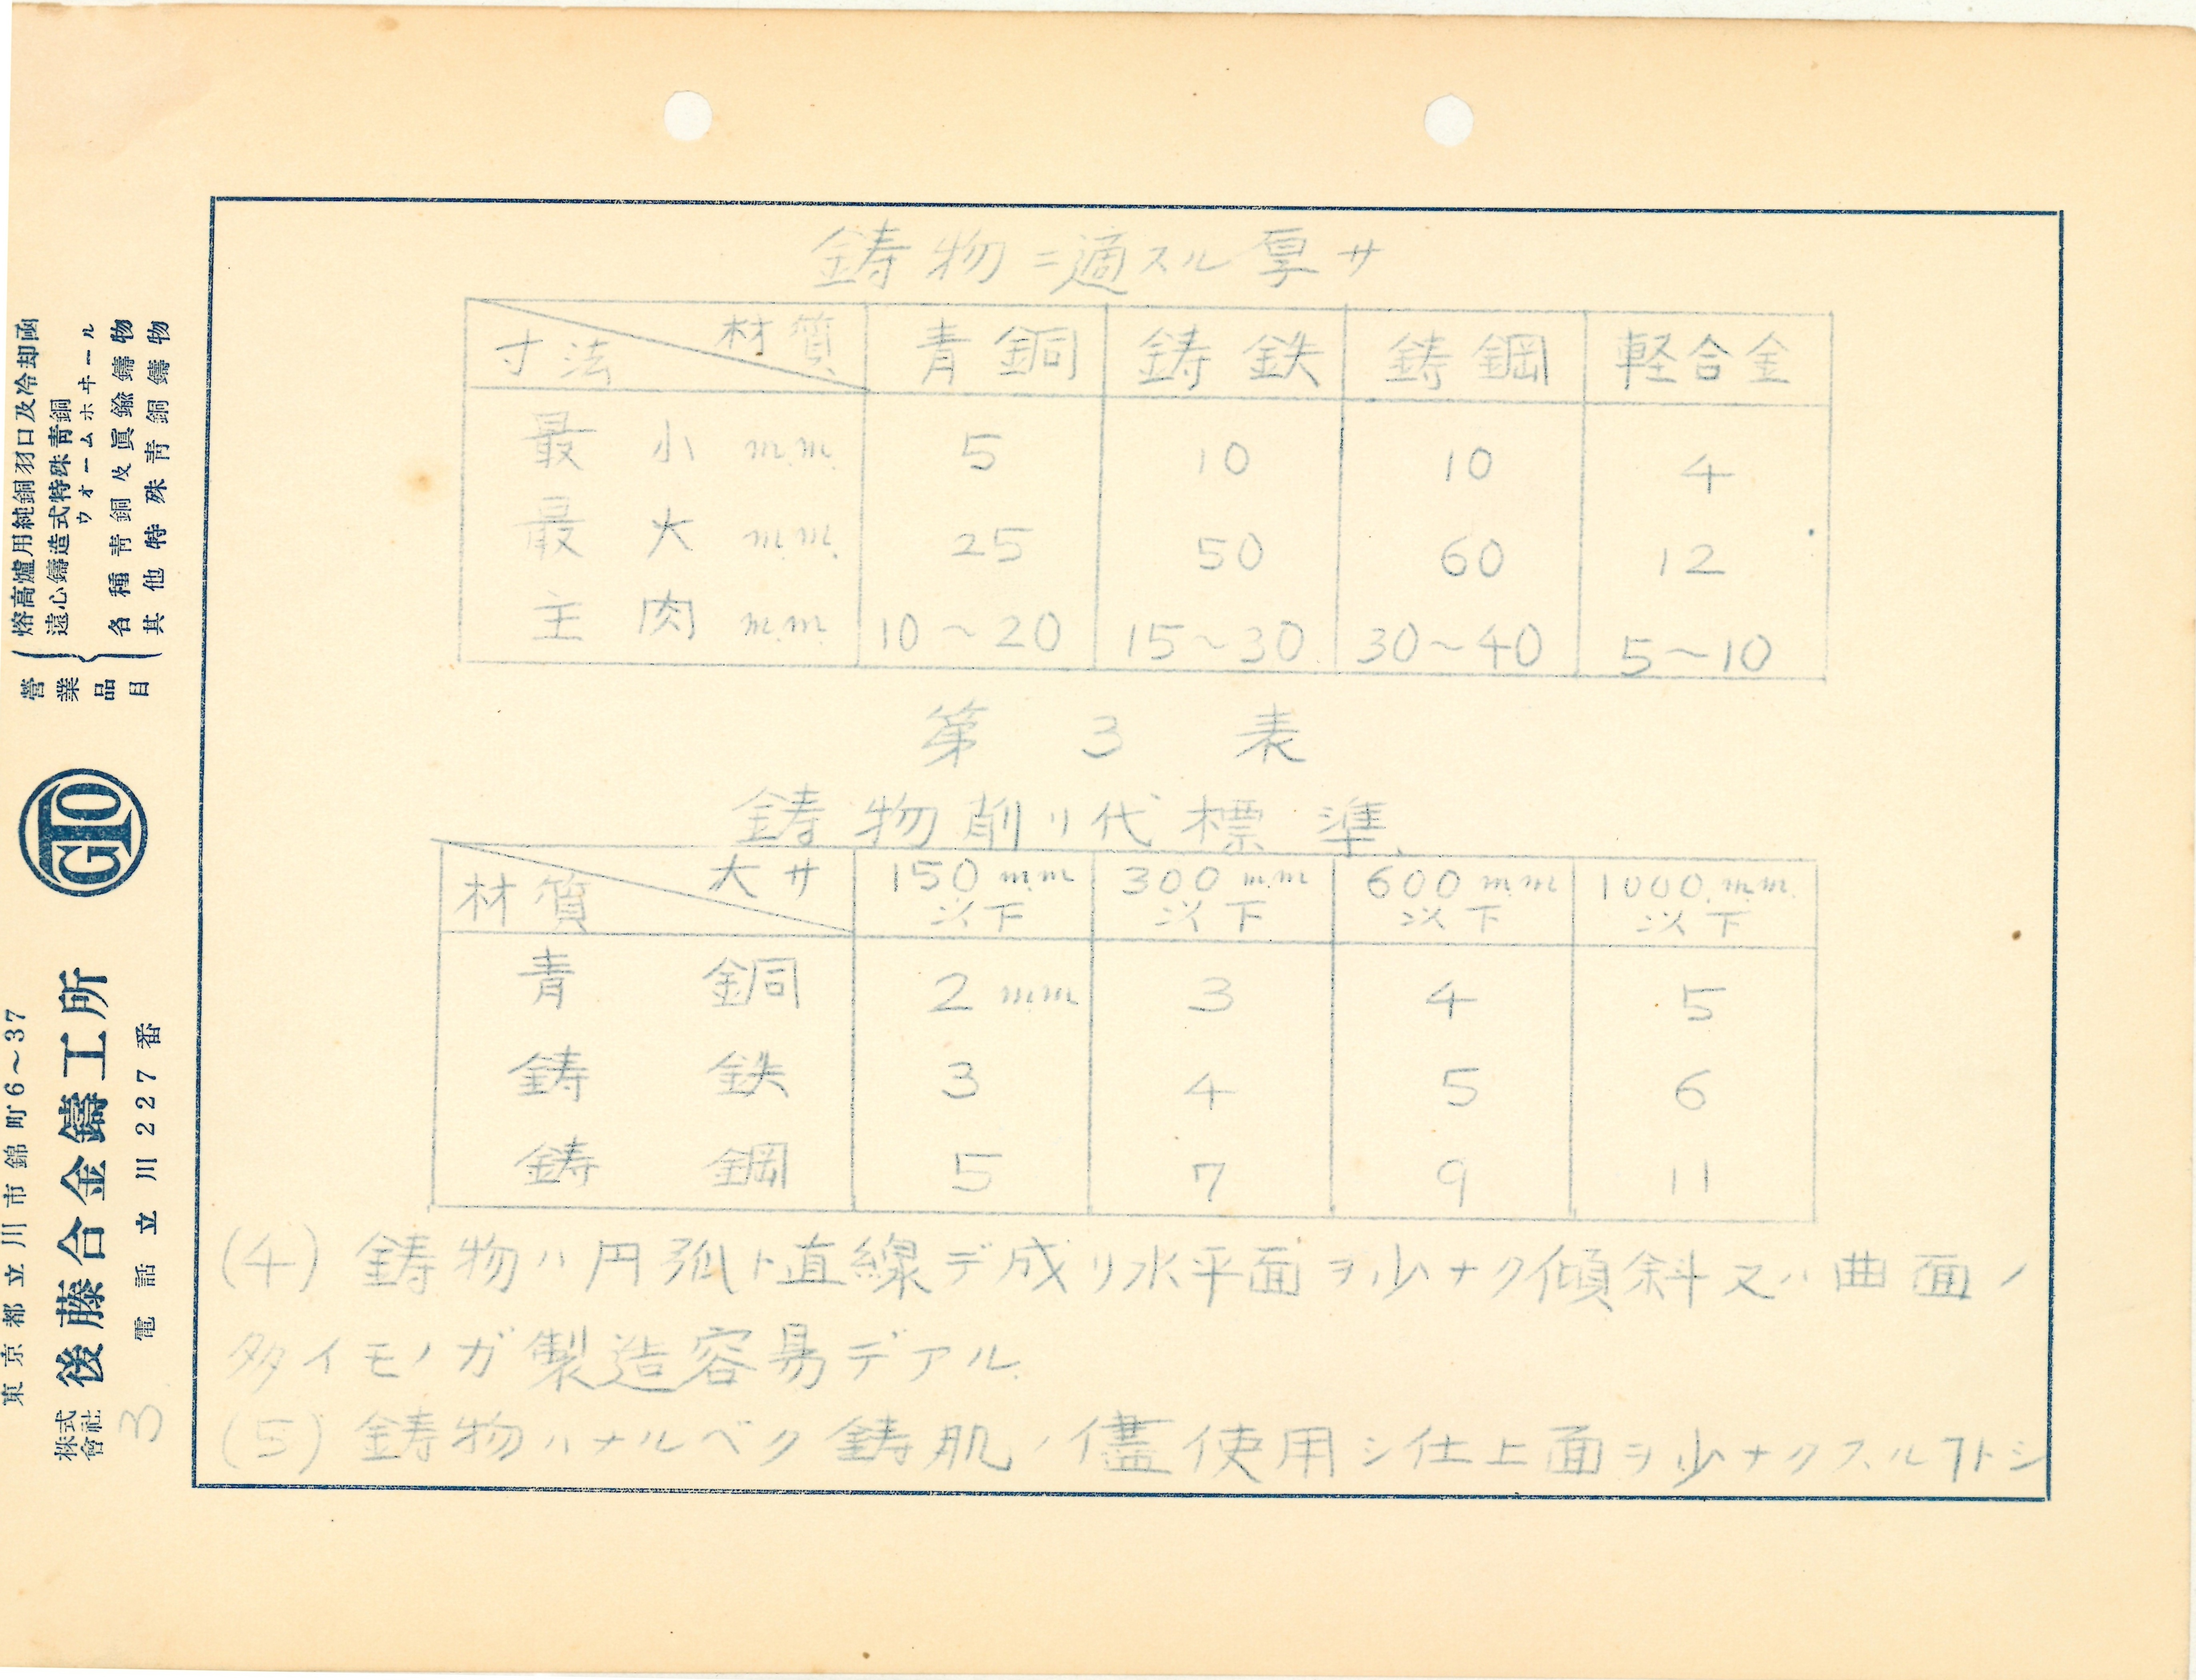 鋳物ニ適スル厚サ
寸法 材質 青銅 鋳鉄 鋳鋼 軽合金
最小 m.m. 5 10 10 4
最大 m.m. 25 50 60 12
主肉 m.m. 10～20 15～30 30～40 5～10
第3表
鋳物削リ代標準
材質 大サ 150 m.m 以下 300 m.m 以下 600 m.m 以下 1000 m.m. 以下
青銅 2 m.m 3 4 5
鋳鉄 3 4 5 6
鋳鋼 5 7 9 11
(4) 鋳物ハ円弧ト直線デ成リ水平面ヲ少ナク傾斜又ハ曲面ノ
多イモノガ製造容易デアル.
(5) 鋳物ハナルベク鋳肌ノ儘使用シ仕上面ヲ少ナクスルヿトシ
營業品目
熔高爐用純銅羽口及冷却函
遠心鑄造式特殊青銅
ウォームホヰール
各種青銅及眞鍮鑄物
其他特殊青銅鑄物
GTO
東京都立川市錦町6～37
株式會社 後藤合金鑄工所
電話立川227番
3